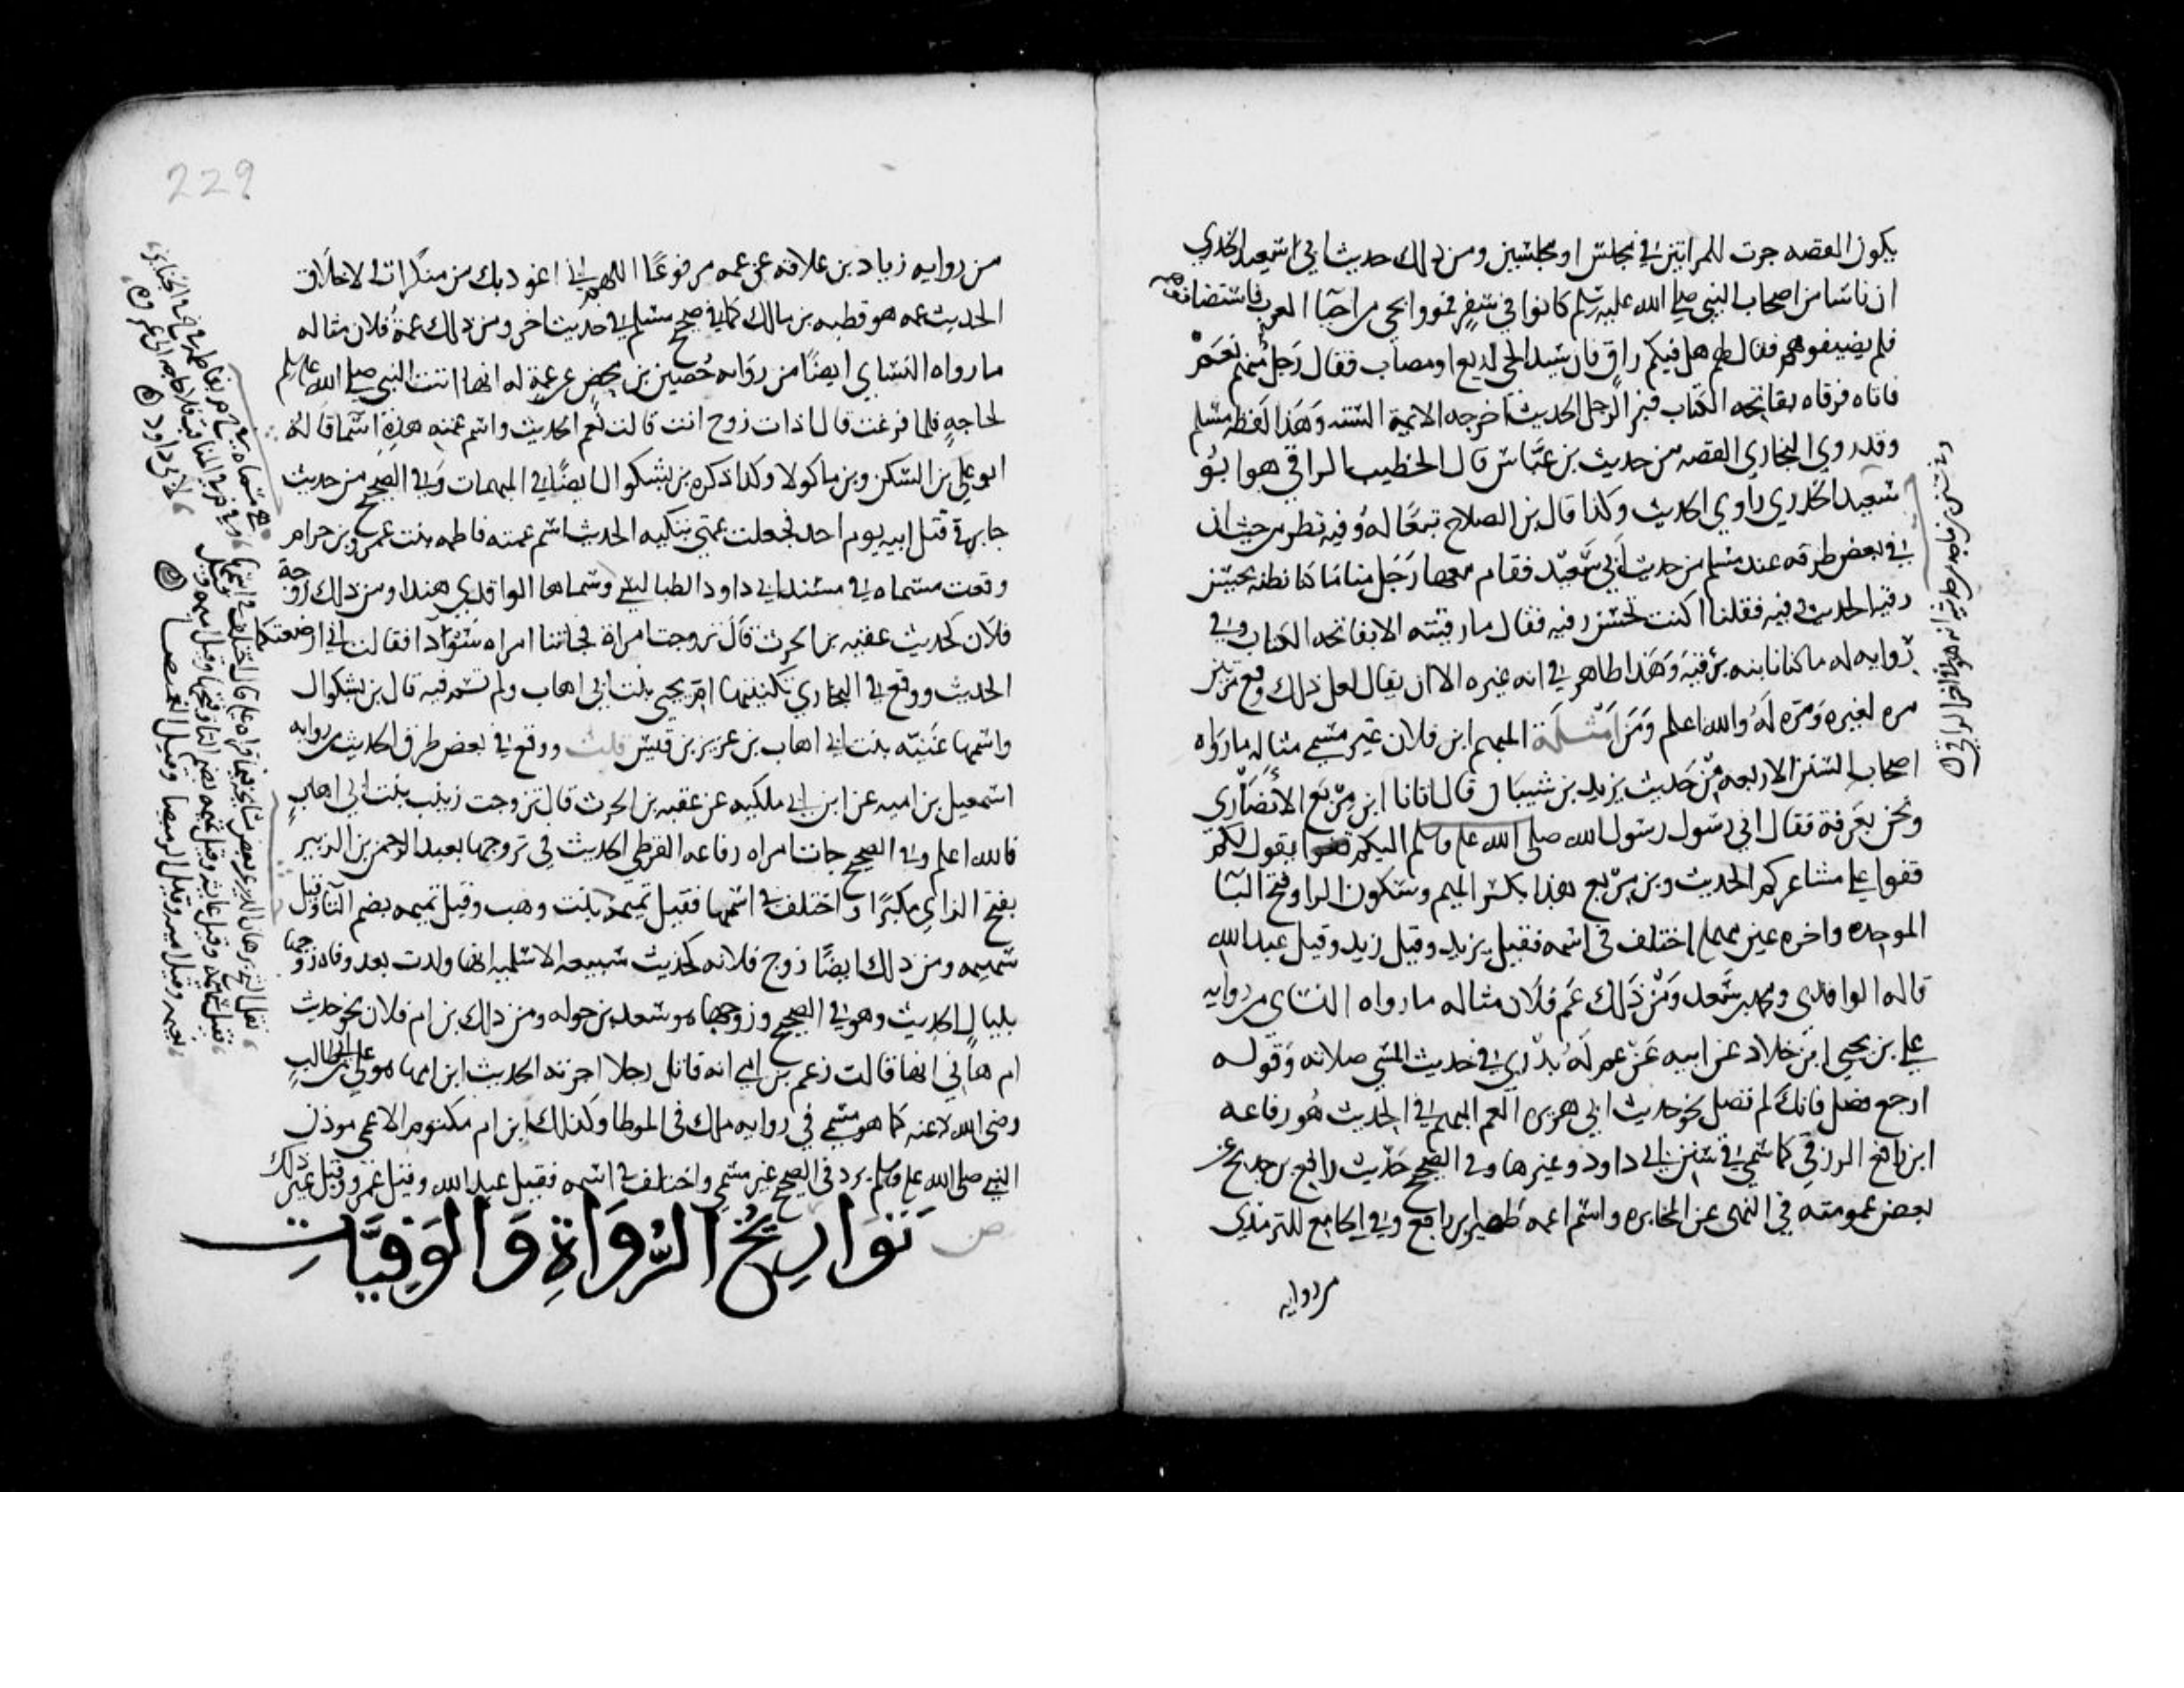 يكون القصه جرت للمراتين في مجلس او مجلسين ومن ذلك حديث ابي سعيد الخدري
ان ناسا من اصحاب النبي صلي الله عليه وسلم كانوا في سفر فمروا بحي من احيا العرب فاستضافوهم
فلم يضيفوهم فقال لهم هل فيكم راق فان سيد الحي لديغ او مصاب فقال رجل منهم نعم
فاتاه فرقاه بفاتحه الكتاب فبرا الرجل الحديث اخرجه الايمة الستة وهذا لفظ مسلم
وقد روي البخاري القصه من حديث بن عباس قال الخطيب الراقي هو ابو
سعيد الخدري راوي الحديث وكذا قال بن الصلاح تبعًا له وفيه نظر من حيث ان
في بعض طرقه عند مسلم من حديث ابي سعيد فقام معها رجل منا ما كنا نظنه يحسن
رقية الحديث وفيه فقلنا اكنت تحسن رقيه فقال ما رقيته الا بفاتحه الكتاب وفي
روايه له ما كنا نابنه برقية وهذا ظاهر في انه غيره الا ان يقال لعل ذلك وقع مرتين
مره لغيره ومره له والله اعلم ومن امثلة المبهم ابن فلان غير مسمي مثاله ما رواه
اصحاب السنن الاربعه من حديث يزيد بن شيبان قال اتانا ابن مربع الانصاري
ونحن بعرفة فقال اني رسول رسول الله صلى الله عليه وسلم اليكم يقول لكم
قفوا علي مشاعركم الحديث وبن مربع هذا بكسر الميم وسكون الرا وفتح البا
الموحده واخره عين مهمله اختلف في اسمه فقيل يزيد وقيل زيد وقيل عبد الله
قاله الواقدي ومحمد بن سعد ومن ذلك عم فلان مثاله ما رواه النساي من روايه
علي بن يحيي ابن خلاد عن ابيه عن عم له بدري في حديث المسي صلاته وقوله
ارجع فصل فانك لم تصل نحو حديث ابي هريره العم المبهم في الحديث هو رفاعه
ابن رافع الزرقي كما سمي في سنن ابي داود وغيرها وفي الصحيح حديث رافع بن خديج عن
بعض عمومته في النهى عن المخابره واسم عمه ظهير بن رافع وفي الجامع للترمذي
من روايه
وفي سنن بن ماجه انه هو الراقي
229
من روايه زياد بن علاقه عن عمه مرفوعًا اللهم اني اعوذ بك من منكرات الاخلاق
الحديث عمه هو قطبه بن مالك كما في صحيح مسلم في حديث اخر ومن ذلك عمة فلان مثاله
ما رواه النساي ايضًا من روايه حصين بن محصن عن عمة له انها اتت النبي صلي الله عليه وسلم
لحاجةٍ فلما فرغت قال اذات زوج انت قالت نعم الحديث واسم عمته هذه اسما قاله
ابو علي بن السكن وبن ماكولا وكذا ذكره بن بشكوال ايضًا في المبهمات وفي الصحيح من حديث
جابر قتل ابيه يوم احد فجعلت عمتي تبكيه الحديث اسم عمته فاطمه بنت عمرو بن حرام
وقعت مسماه في مسند ابي داود الطيالسي وسماها الواقدي هندا ومن ذلك زوجة
فلان كحديث عقبه بن الحرث قال تزوجت امراة فجاتنا امراه سودا فقالت اني ارضعتكما
الحديث ووقع في البخاري تكنيتها ام يحيى بنت ابي اهاب ولم تسم فيه قال بن بشكوال
واسمها غنيه بنت ابي اهاب بن عزيز بن قيس قلت ووقع في بعض طرق الحديث من روايه
اسمعيل بن اميه عن ابن ابي مليكه عن عقبه بن الحرث قال تزوجت زينب بنت ابي اهاب
فالله اعلم وفي الصحيح جات امراه رفاعه القرظي الحديث في تزوجها بعبد الرحمن بن الزبير
بفتح الزاي مكبرًا واختلف في اسمها فقيل تميمة بنت وهب وقيل تميمه بضم التا وقيل
سهيمه ومن ذلك ايضًا زوج فلانه كحديث سبيعه الاسلميه انها ولدت بعد وفاة زوجها
بليال الحديث وهو في الصحيح وزوجها هو سعد بن خوله ومن ذلك بن ام فلان نحو حديث
ام هاني انها قالت زعم بن امي انه قاتل رجلا اجرته الحديث ابن امها هو علي بن ابي طالب
رضى الله عنه كما هو مسمي في روايه ملك فى الموطا وكذلك ابن ام مكتوم الاعمى موذن
النبي صلى الله عليه وسلم يرد فى الصحيح غير مسمي واختلف في اسمه فقيل عبد الله وقيل عمرو وقيل غير ذلك
ص تَوَارِيخُ الرُّوَاةِ وَالوَفِيَّاتِ